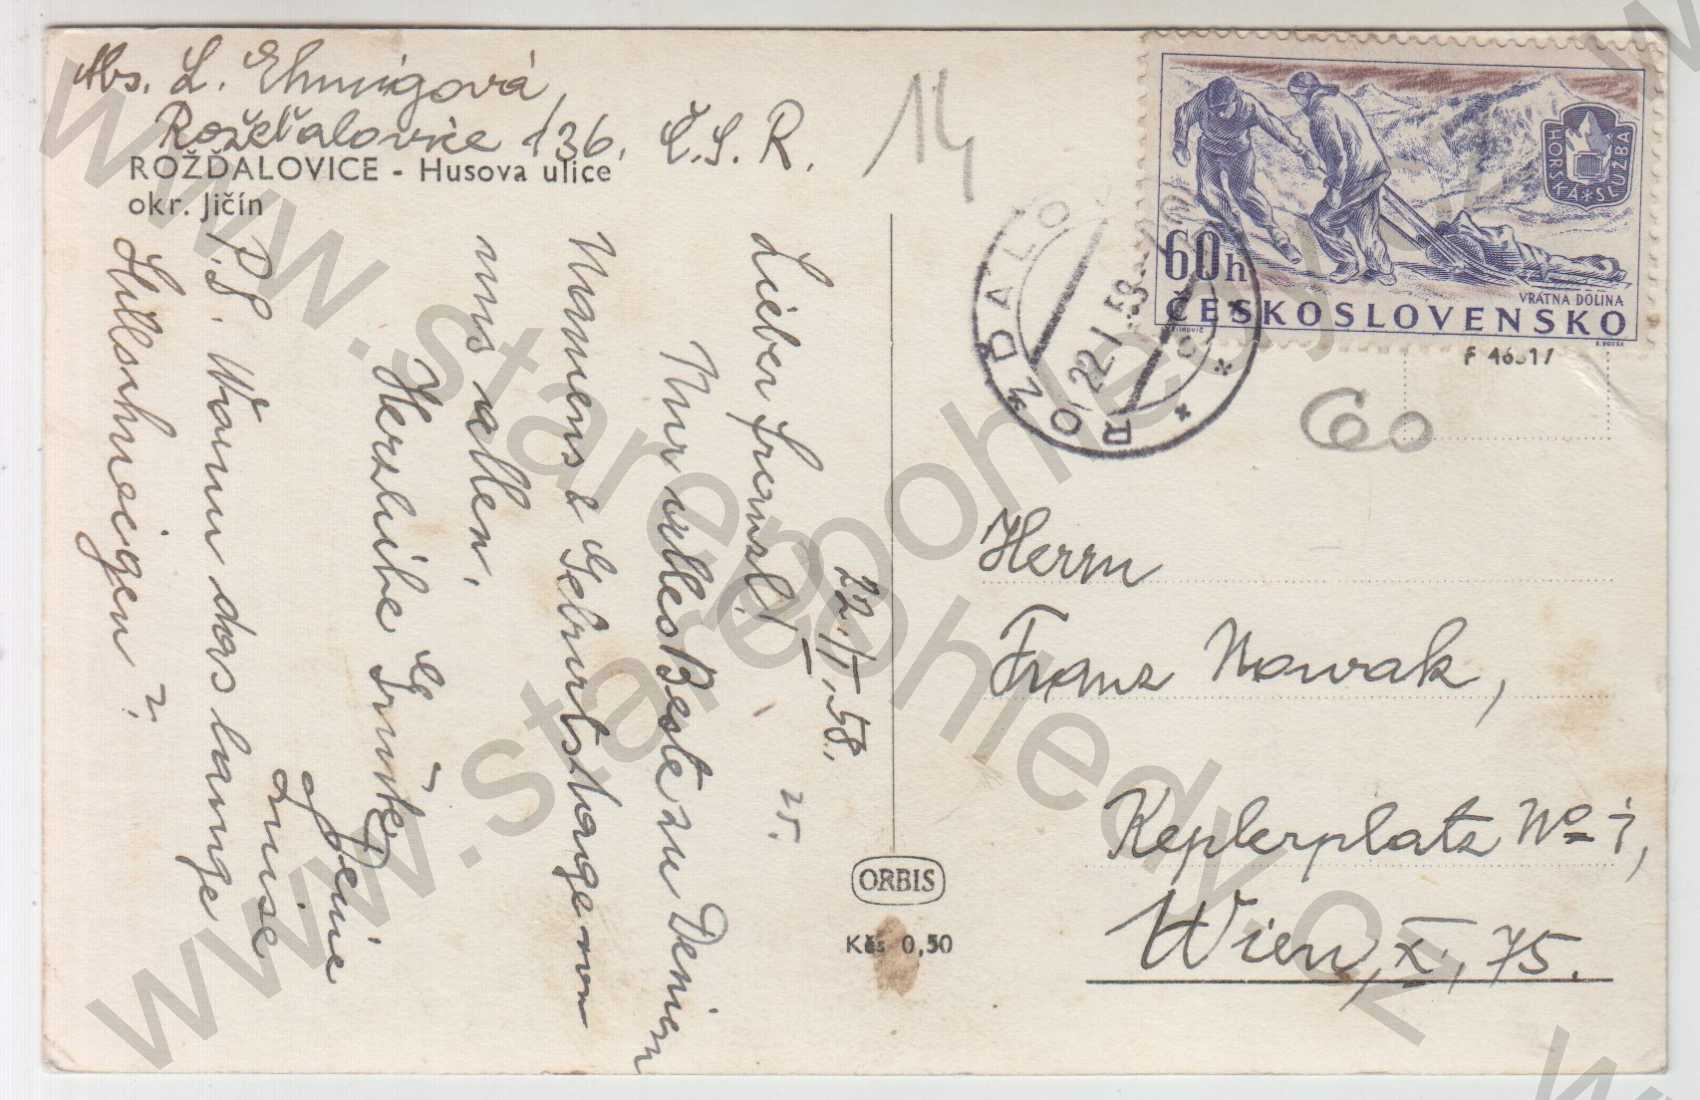 Abs. L. Ehmigová,
Rožďalovice 136, Č.S.R.
ROŽĎALOVICE - Husova ulice
okr. Jičín
14
HORSKÁ SLUŽBA
60h
VRÁTNA DOLINA
ČESKOSLOVENSKO
ROŽĎALO
22.I.58
F 46317
60
22./I.58.
Lieber Franzl!
Nur alles Beste zu Deinem
Namens & Geburtstage von
uns allen.
Herzliche Grüße, Deine
Luise
P.S. Warum das lange
Stillschweigen?
25.
ORBIS
Kčs 0,50
Herrn
Franz Nowak,
Keplerplatz No 7,
Wien, X., 75.
www.starepohledy.cz
www.starepohledy.cz